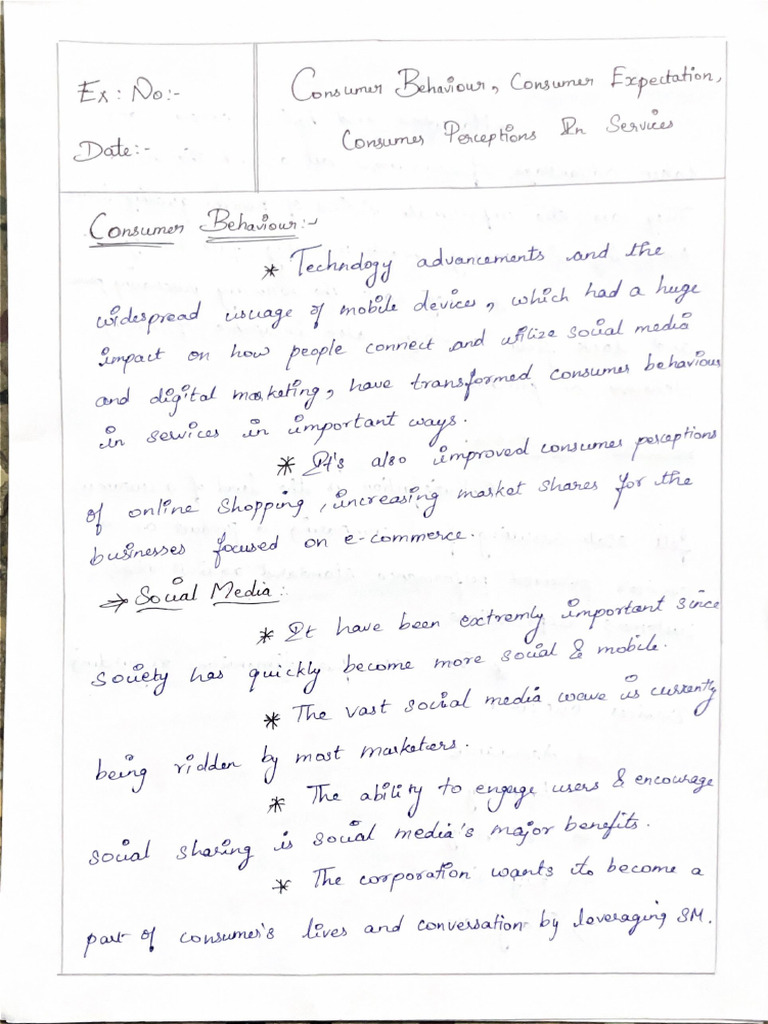 Ex: No:-
Consumer Behaviour, Consumer Expectation,
Consumer Perceptions In Services
Date:-
Consumer Behaviour:-
* Technology advancements and the
widespread usuage of mobile devices, which had a huge
impact on how people connect and utilize social media
and digital marketing, have transformed consumer behaviour
in services in important ways.
* It's also improved consumer perceptions
of online shopping, increasing market shares for the
businesses focused on e-commerce.
→ Social Media:
* It have been extremly important since
society has quickly become more social & mobile.
* The vast social media wave is currently
being ridden by most marketers.
* The ability to engage users & encourage
social sharing is social media's major benefits.
* The corporation wants to become a
part of consumer's lives and conversation by leveraging SM.